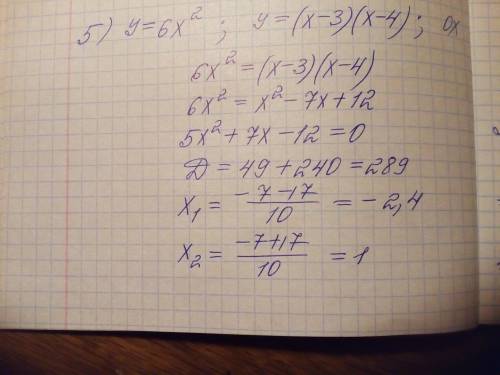 5) y=6x² ; y=(x-3)(x-4); 0x
6x²=(x-3)(x-4)
6x²= x²-7x+12
5x²+7x-12=0
Д=49+240=289
x₁= (-7-17)/10 = -2,4
x₂= (-7+17)/10 = 1